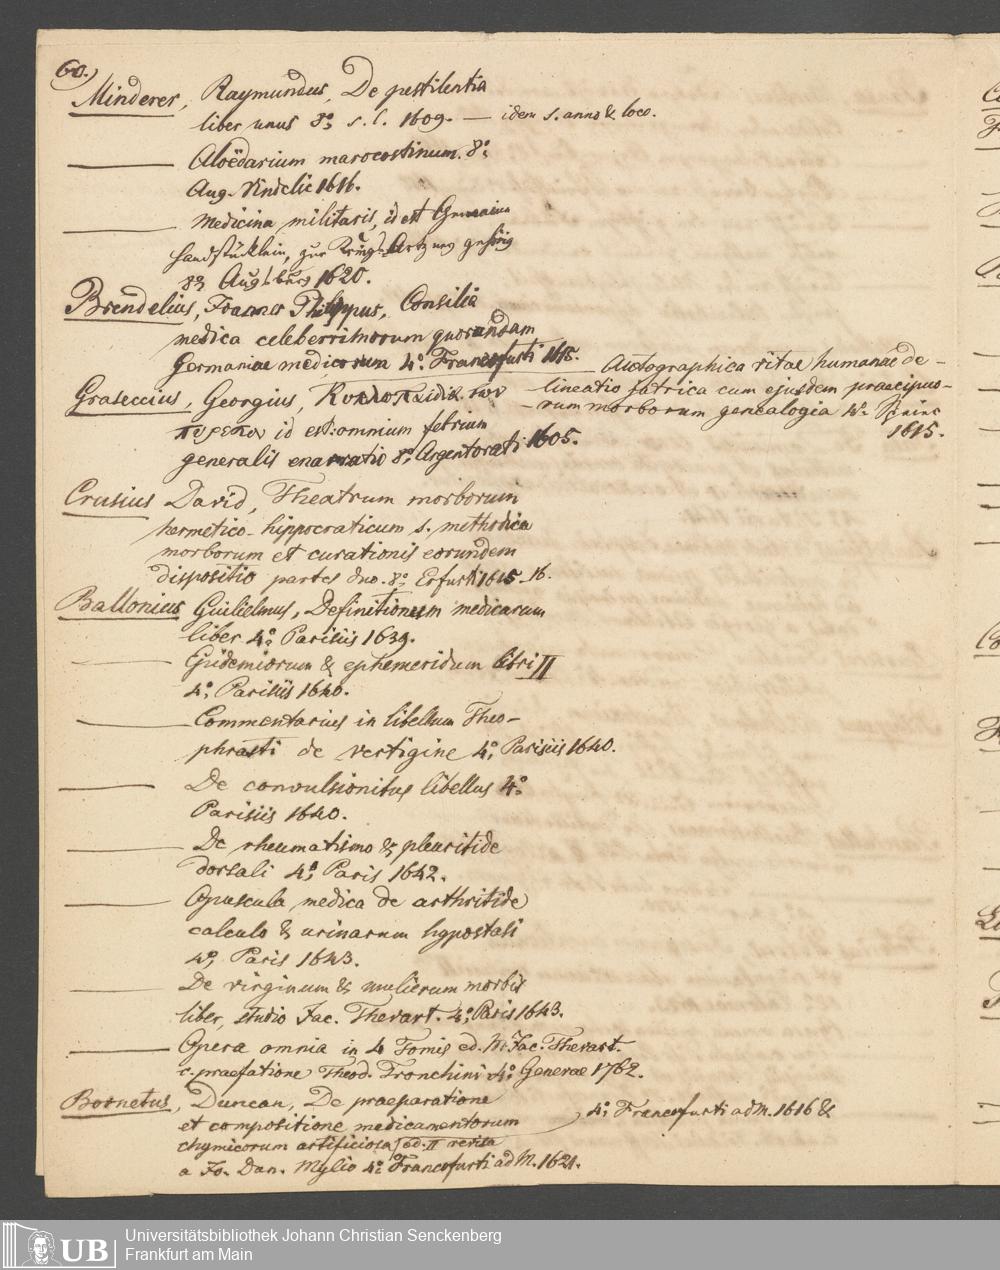 60.)
Minderer, Raymundus, De pestilentia
liber unus 8°, s. l. 1609. — idem s. anno & loco.
— Aloëdarium marocostinum. 8°,
Aug. Vindelic 1616.
— Medicina militaris, id est Gemaine
handstücklein, zur Kriegs-Artzney gehörig
8°, Augsburg 1620.
Brendelius, Joannes Philippus, Consilia
medica celeberrimorum quorundam
Germaniae medicorum 4°. Francofurti 1615.
Graseccius, Georgius, Κυκλοπαιδια των
πυρετων id est: omnium febrium
generalis enarratio 8°, Argentorati 1605.
— Autographica vitae humanae de-
lineatio Jatrica cum ejusdem praecipuo-
rum morborum genealogia 4°.
1615.
Crusius David, Theatrum morborum
hermetico-hippocraticum s. methodica
morborum et curationis eorundem
dispositio partes duo. 8°, Erfurti 1615_16.
Ballonius Guilielmus, Definitionum medicarum
liber 4°, Parisiis 1639.
— Epidemiorum & ephemeridum libri II
4°, Parisiis 1640.
— Commentarius in libellum Theo-
phrasti de vertigine 4°, Parisiis 1640.
— De convulsionibus libellus 4°
Parisiis 1640.
— De rheumatismo & pleuritide
dorsali 4°, Paris 1642.
— Opuscula medica de arthritide
calculo & urinarum hypostasi
4°, Paris 1643.
— De virginum & mulierum morbis
liber, studio Jac. Thevart. 4°, Paris 1643.
— Opera omnia in 4 Tomis ed. M. Jac. Thevart.
c. praefatione Theod. Tronchini 4°, Genevae 1762.
Bornetus, Duncan, De praeparatione
et compositione medicamentorum
chymicorum artificiosa 4°, Francofurti ad M. 1616 &
ed. II revisa
a Jo. Dan. Mylio 4°, Francofurti ad M. 1621.
UB
Universitätsbibliothek Johann Christian Senckenberg
Frankfurt am Main